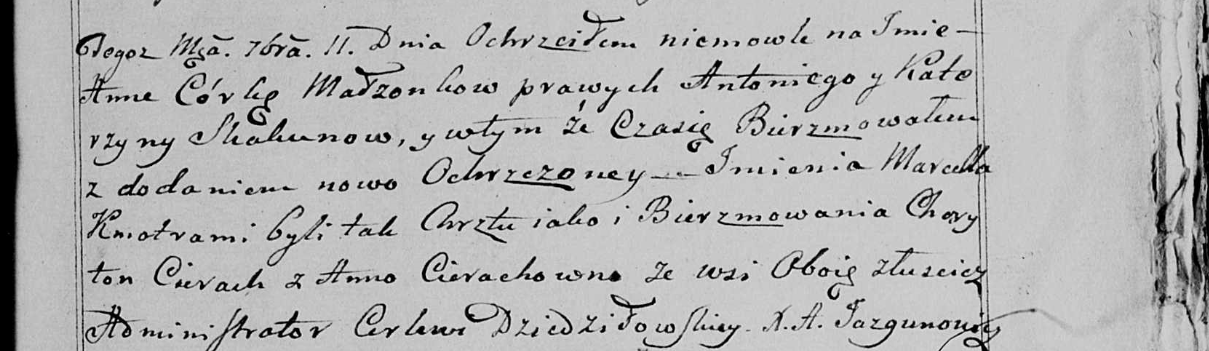 Tegoż Mca. 7bra. 11. Dnia Ochrzciłem niemowle na Imie –
Anne Córkę Małzonkow prawych Antoniego y Kata
rzyny Skakunow, y wtym że Czasię Bierzmowałem
z dodaniem nowo Ochrzczoney – Imienia Marcella
Kmotrami byli tak Chrztu iako i Bierzmowania Chary
ton Cierach z Anno Cierachowno ze wsi Oboię
Administrator Cerkwi Dziedziłowskiey X. A. Jazgunowicz